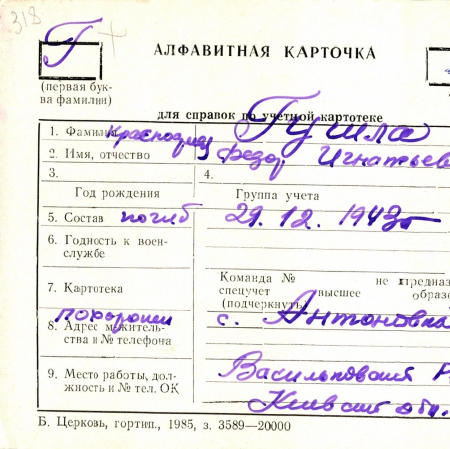 318
Г
АЛФАВИТНАЯ КАРТОЧКА
(первая бук-
ва фамилии)
для справок по учетной картотеке
1. Фамилия Гушла
2. Имя, отчество Федор Игнатьев
3. 4.
Год рождения Группа учета
5. Состав погиб 29.12.1943г
6. Годность к воен-
службе
Команда № не предназ
7. Картотека спецучет высшее образо
(подчеркнуть)
похоронен с. Антоновка
8. Адрес м жительс-
тва и № телефона
9. Место работы, дол- Васильковский р
жность и № тел. ОК Киевской обл.
Б. Церковь, гортип., 1985, з. 3589—20000